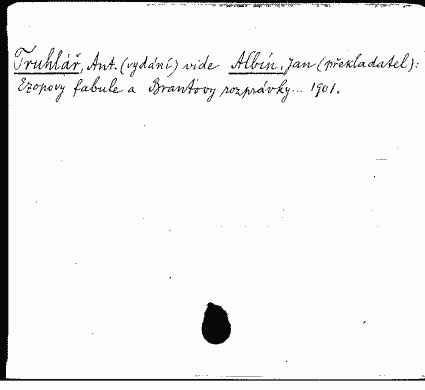 Truhlář, Ant. (vydání) vide Albín, Jan (překladatel):
Ezopovy fabule a Brantovy rozprávky... 1901.